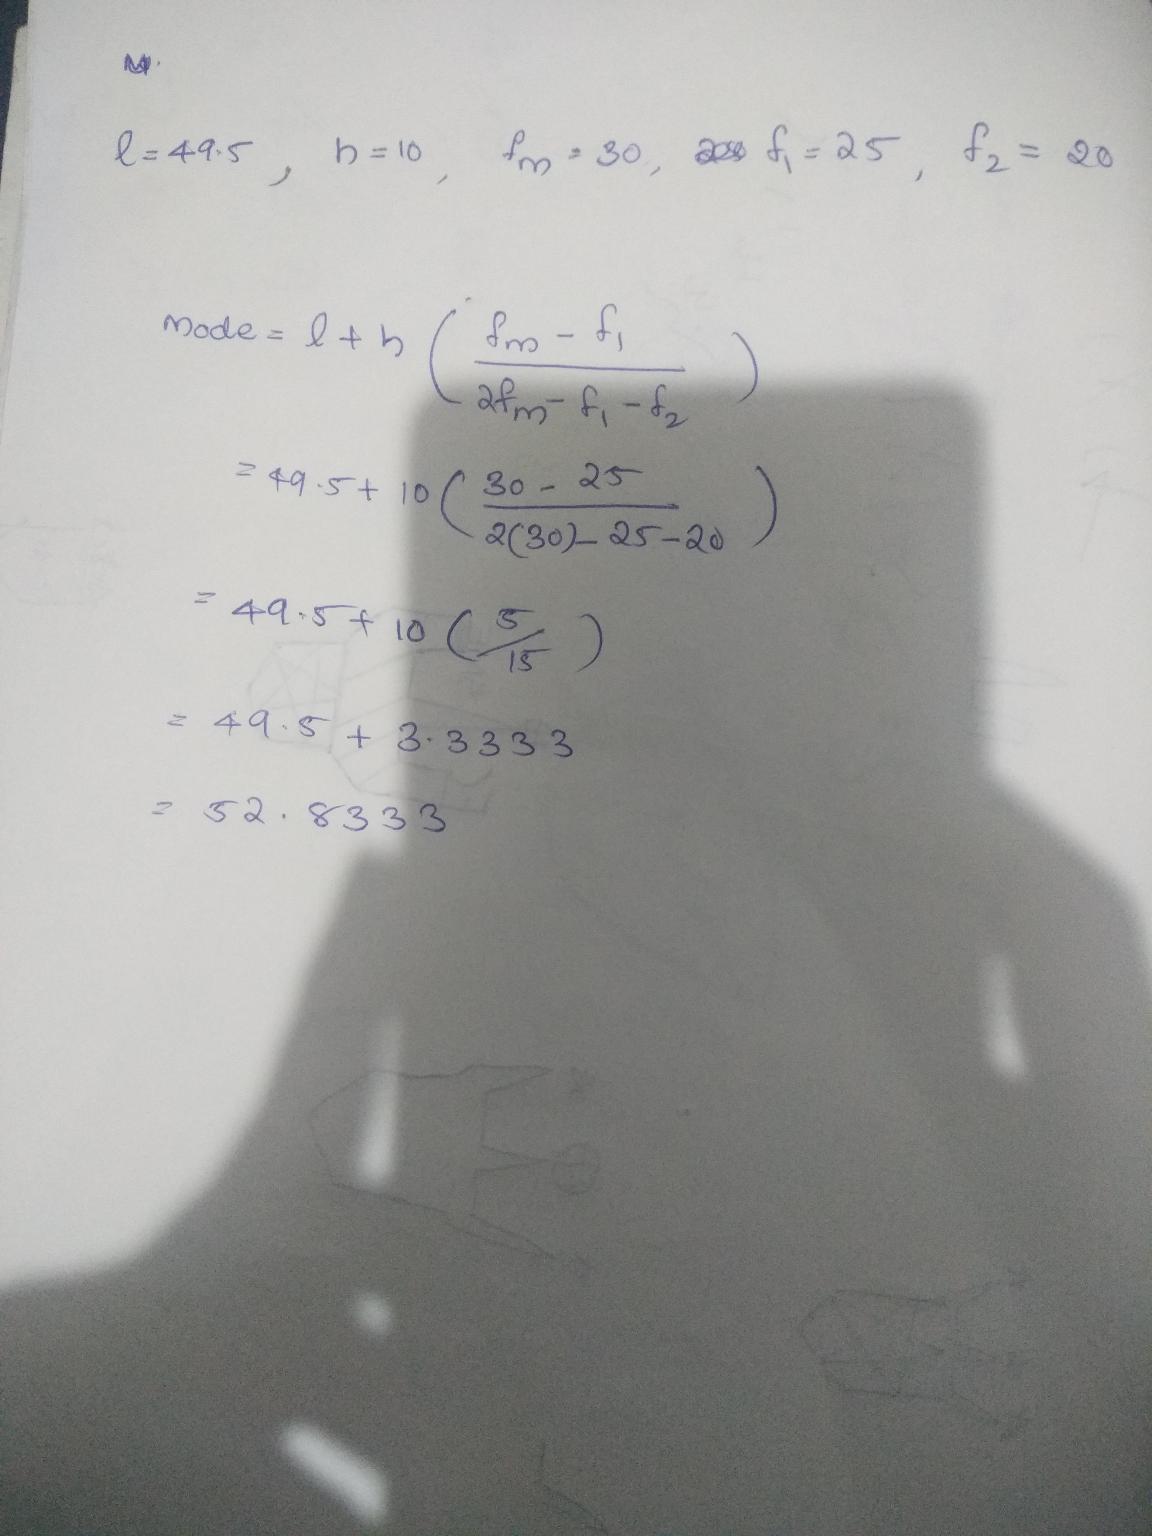 l = 49.5 , h = 10 , fm = 30, f₁ = 25 , f₂ = 20
Mode = l + h ( fm - f₁ / 2fm - f₁ - f₂ )
= 49.5 + 10 ( 30 - 25 / 2(30) - 25 - 20 )
= 49.5 + 10 ( 5/15 )
= 49.5 + 3.3333
= 52.8333